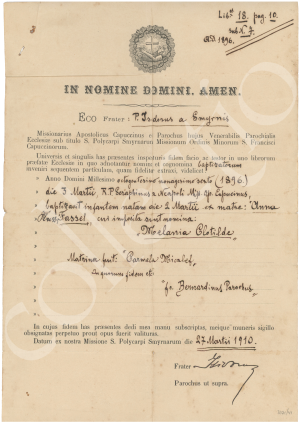 Lib.° 18. pag. 10.
sub N. 7.
A.D. 1896.
IN NOMINE DOMINI. AMEN.
EGO Frater : P. Isidorus a Smyrnis
Missionarius Apostolicus Capuccinus et Parochus hujus Venerabilis Parochialis
Ecclesiæ sub titulo S. Polycarpi Smyrnarum Missionum Ordinis Minorum S. Francisci
Capuccinorum.
Universis et singulis has præsentes inspecturis fidem facio ac testor in uno librorum
præfatæ Ecclesiæ in quo adnotantur nomina et cognomina baptizatorum
avenisi sequentem particulam, quam fideliter extraxi, videlicet :
Anno Domini Millesimo octingentesimo nonagesimo sexto (1896)
die 3 Martii R. P. Seraphinus a Neapoli Mis. Ap. Capucinus,
baptizavit infantem natam die 2 Martii ex matre: "Anna
Fassel", cui imposita sunt nomina:
Melania Clotilde
Matrina fuit: Carmela Micalef.
In quorum fidem etc
"fr. Bernardinus Parochus"
In cujus fidem has præsentes dedi mea manu subscriptas, meique muneris sigillo
obsignatas perpetuo pront opus fuerit valituras.
Datum ex nostra Missione S. Polycarpi Smyrnarum die 27 Martii 1910.
Frater
Parochus ut supra.